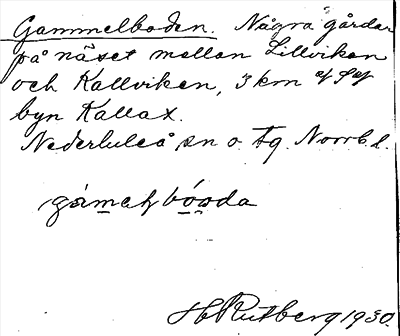 Gammelboden. Några gårdar
på näset mellan Lillviken
och Kallviken, 3 km
byn Kallax.
Nederluleå sn o. tg. Norrb. l.
H Rutberg 1930.